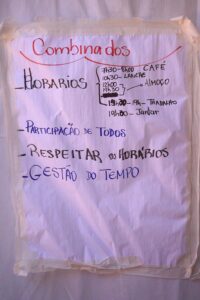 Combinados
HORARIOS
7H30 - 8H00 CAFÉ
10H30 - LANCHE
12H00
ALMOÇO
- TRABALHO
19H00 - Jantar
- PARTICIPAÇÃO DE TODOS
- RESPEITAR OS HORÁRIOS
- GESTÃO DO TEMPO